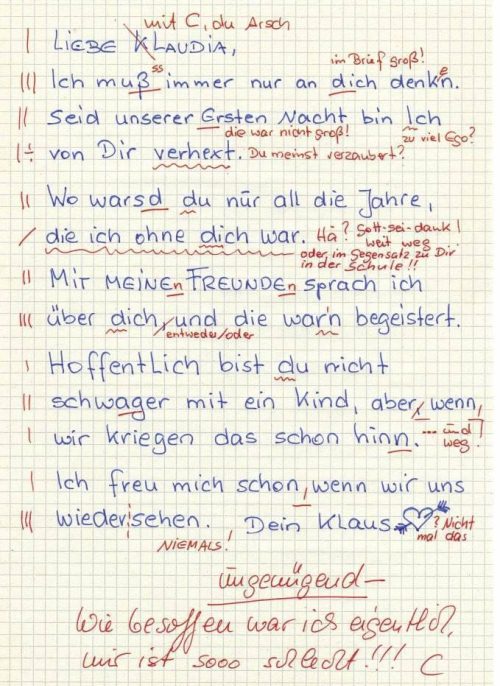 mit C, du Arsch
| Liebe Klaudia,
im Brief groß!
||| Ich muß ss immer nur an dich denk'n. e
|| Seid unserer Ersten Nacht bin Ich
die war nicht groß! zu viel Ego?
|÷ von Dir verhext. Du meinst verzaubert?
|| Wo warsd du nur all die Jahre,
/ die ich ohne dich war. Hä? Gott-sei-dank!
weit weg
oder im Gegensatz zu Dir
in der Schule!!
|| Mit meinen Freunden sprach ich
||| über dich, und die war'n begeistert.
entweder/oder
| Hoffentlich bist du nicht
|| schwager mit ein Kind, aber, wenn,
| wir kriegen das schon hinn. ... und weg!
| Ich freu mich schon, wenn wir uns
||| wiedersehen. Dein Klaus ? Nicht
mal das
NIEMALS!
ungenügend –
Wie besoffen war ich eigentlich,
mir ist sooo schlecht!!! C